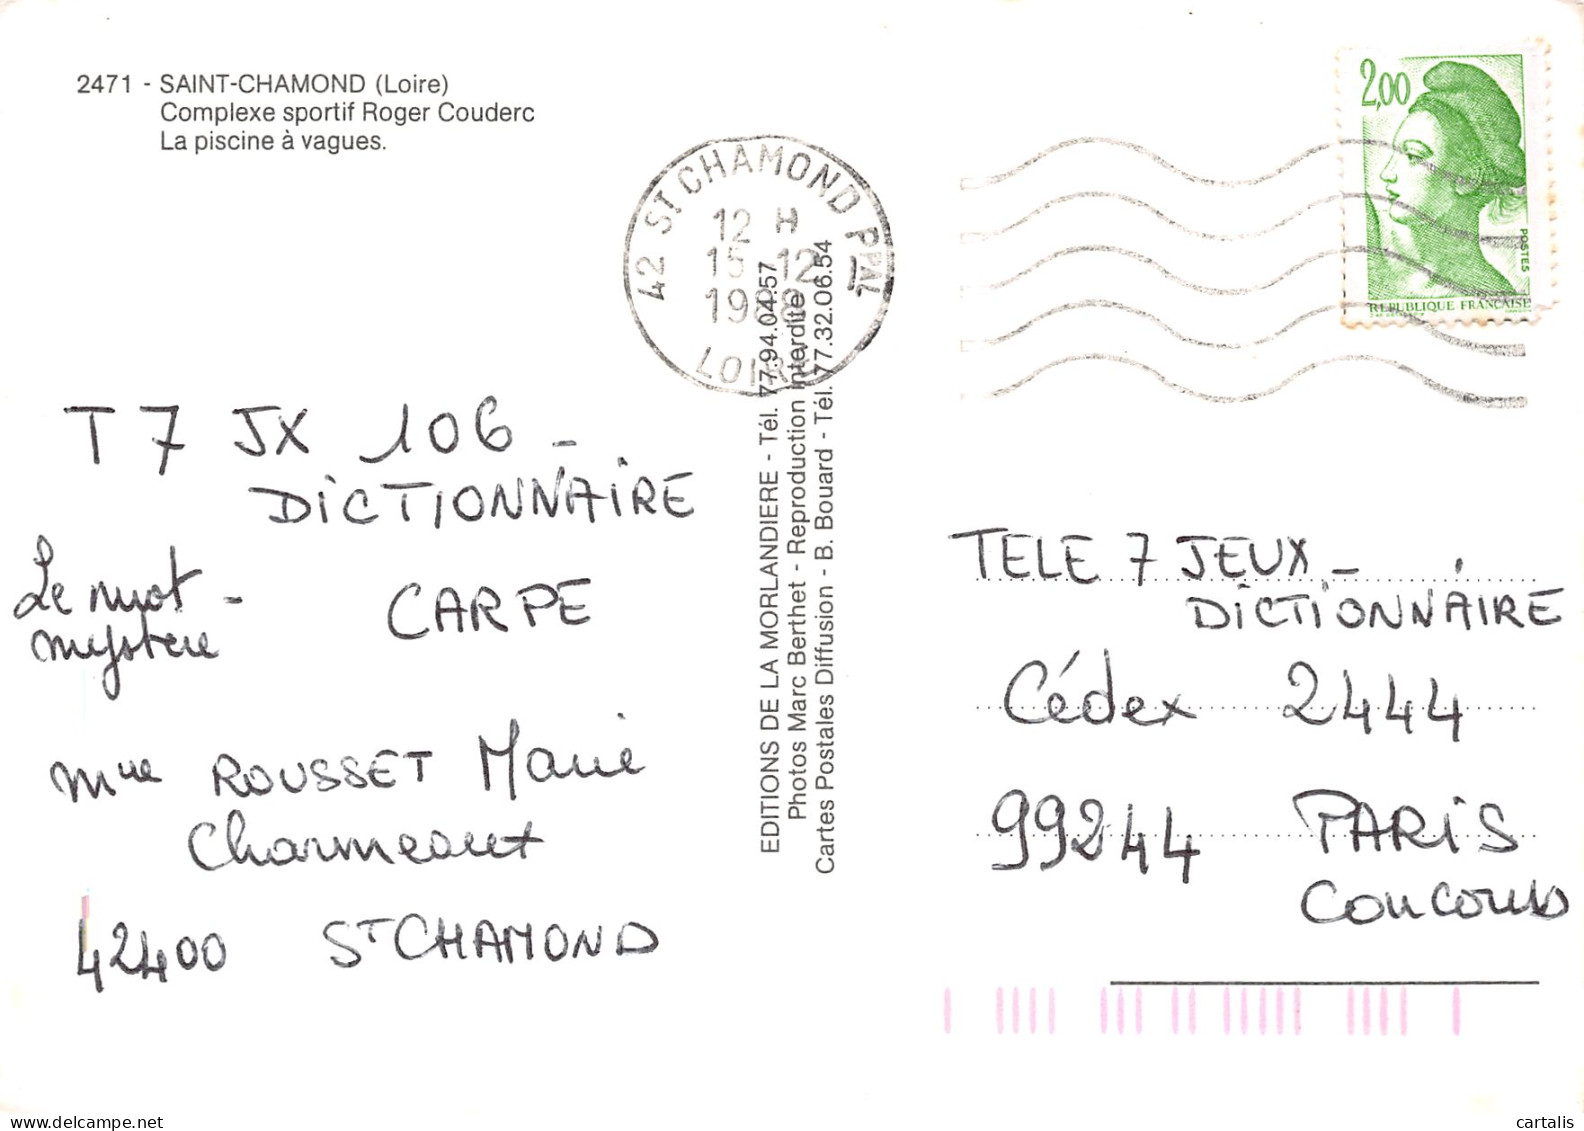 2471 - SAINT-CHAMOND (Loire)
Complexe sportif Roger Couderc
La piscine à vagues.
42 ST CHAMOND PPAL
12 H
15 12
1988
LOIRE
2,00
POSTES
REPUBLIQUE FRANÇAISE
T 7 JX 106 -
DICTIONNAIRE
Le mot -
mystère
CARPE
Mme ROUSSET Marie
Charmeaux
42400 ST CHAMOND
EDITIONS DE LA MORLANDIERE - Tél. 77.94.04.57
Photos Marc Berthet - Reproduction interdite
Cartes Postales Diffusion - B. Bouard - Tél. 77.32.06.54
TELE 7 JEUX -
DICTIONNAIRE
Cédex 2444
99244 PARIS
CONCOURS
cartalis